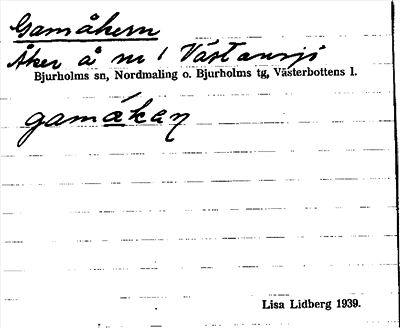 Gamåkern
Åker å nr 1 Västansjö
Bjurholms sn, Nordmaling o. Bjurholms tg, Västerbottens l.
gamåkaɳ
Lisa Lidberg 1939.